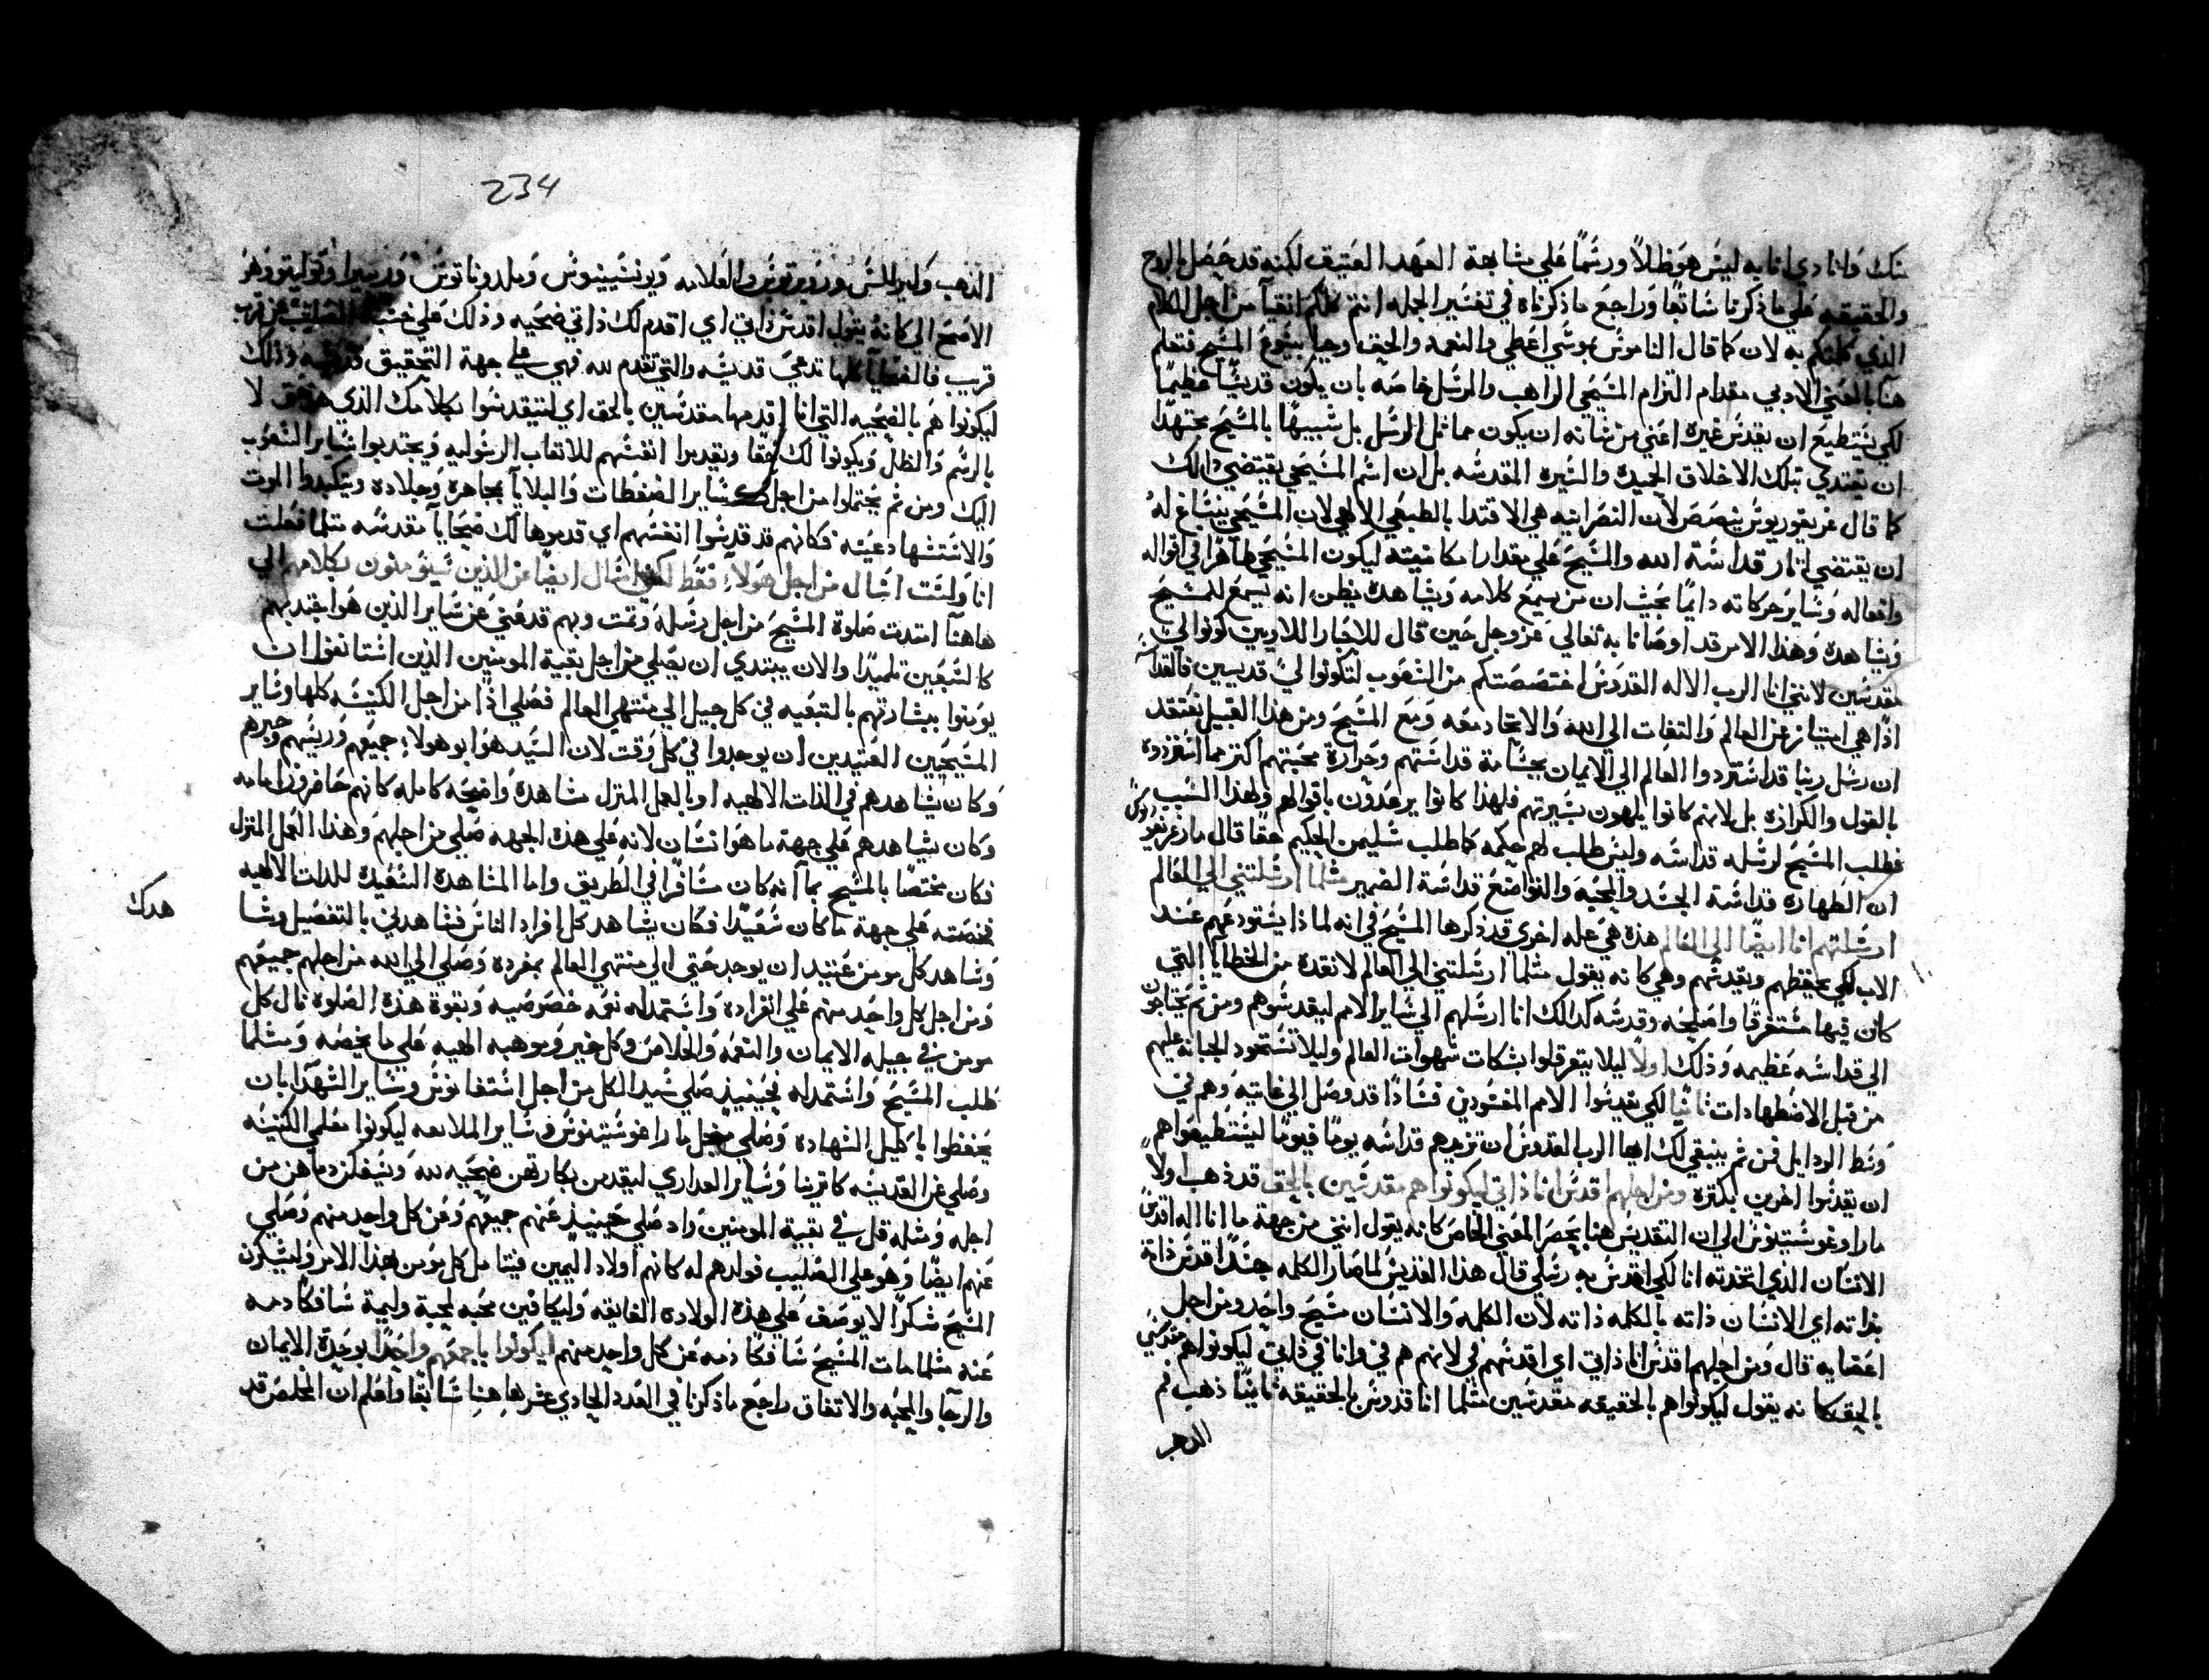 منك وانادي انا به ليس هو ظلاً ورسمًا علي مشابهة العهد العتيق لكنه قد حصل بالروح
والحقيقه علي ما ذكرنا سابقًا وراجع ما ذكرناه في تفسير الجمله انتم كلكم انقيآ من اجل الكلام
الذي كلمتكم به لان كما قال الناموس بموسي اعطي والنعمه والحق وجيا بيسوع المسيح فتعلم
هنا بالمعني الادبي مقدام التزام المسيحي الراهب والمرسل خاصه بان يكون قديسًا عظيمًا
لكي يستطيع ان يقدس غيره اعني من شانه ان يكون مماثل الرسل بل شبيهًا بالمسيح مجتهدًا
ان يقتدي بتلك الاخلاق الحميده والسيره المقدسه بل ان اسم المسيحي يقتضي ذالك
كما قال غريغوريوس ينصصَ لان النصرانيه هي الاقتدا بالطبعي الالهي لان المسيحي ينساغ له
ان يقتضي اثار قداسة الله والمسيح علي مقدار مكانيته ليكون المسيحي ظاهرًا في اقواله
وافعاله وسَاير حركاته دايمًا بحيث ان من يسمع كلامه ويشاهده يظن انه يسمع للمسيح
ويشاهده وهذا الامر قد اوصانا به تعالي عز وجل حين قال للاحبار اللاويين كونوا لي
مقدسين لانني انا الرب الاله القدوس اختصصتكم من الشعوب لتكونوا لي قديسين فالقداسه
اذًا هي امتياز عن العالم والتفات الي الله والاتحاد معه ومع المسيح ومن هذا القبيل نعتقد
ان رسل ربنا قد استردوا العالم الي الايمان بجسامة قداستهم وحرارة محبتهم اكتر مما استردوه
بالقول والكرازه بل لانهم كانوا يلهون بسيرتهم فلهذا كانوا يرعدون باقوالهم ولهذا السبب
فطلب المسيح لرسله قداسه وليس طلب لهم حكمه كما طلب سليمن الحكيم حقًا قال مار غريغوريوس
ان الطهاره قداسة الجسد والمحبه والتواضع قداسة الضمير مثلما ارسلتني الي العالم
ارسلتهم انا ايضًا الي العالم هذه هي عله اخري قد ذكرها المسيح في انه لماذا يستودعهم عند
الاب لكي يحفظهم ويقدسهم وهي كانه يقول مثلما ارسلتني الي العالم لانقده من الخطايا التي
كان فيها مستغرقًا واصلحه وقدسه كذالك انا ارسلهم الي ساير الامم ليقدسوهم ومن ثم يحتاجون
الي قداسه عظيمه وذلك اولاً ليلا يتعرقلوا بشكات شهوات العالم وليلا تستحود الجبانه عليهم
من قبل الاضطهادات ثانيًا لكي يقدسوا الامم المفسودين فسادًا قد وصل الي غايته وهم في
وسط الردايل فمن ثم ينبغي لك ايها الرب القدوس ان تزيدهم قداسه يومًا فيومًا ليستطيعوا هم
ان يقدسوا اخرين بكتره ومن اجلهم اقدس انا ذاتي ليكونوا هم مقدسين بالحق قد ذهب اولاً
مار اوغوستينوس الي ان التقديس هنا يحصر المعني الخاص كانه يقول انني من جهة ما انا اله اقدس
الانسان الذي اتخدته انا لكي اقدس به رسلي قال هذا القديس لما صار الكلمه جسدًا قدس ذاته
بذاته اي الانسان ذاته بالكلمه ذاته لان الكلمه والانسان مسيح واحد ومن اجل
اعضايه قال ومن اجلهم اقدس انا ذاتي اي اقدسهم في لانهم هم في وانا في ذاتي ليكونوا هم مقدسين
بالحق كانه يقول ليكونوا هم بالحقيقه مقدسين مثلما انا قدوس بالحقيقه ثانيًا ذهب فم
الدهب
234
الذهب وكيرللس وروبرتوس والعلامه ويونسينيوس وملدوناتوس وريبيرا وتوليتو وهو
الاصح الي كانه يقول اقدس ذاتي اي اقدم لك ذاتي ضحيه وذلك علي خشبة الصليب عن قرب
قريب فالضحايا كلها تدعي قديسه والتي تقدم لله فهي علي جهة التحقيق قديسه وذلك
ليكونوا هم بالضحيه التي انا اقدمها مقدسين بالحق اي ليتقدسوا بكلامك الذي هو حق لا
بالرسم والظل ويكونوا لك حقًا ويقدموا انفسهم للاتعاب الرسوليه ويجتدبوا ساير الشعوب
اليك ومن ثم يحتملوا من اجلك ساير الضغطات والبلايآ بمجاهره وجلاده ويتكبدوا الموت
والاستشهاد عينه فكانهم قد قدسوا انفسهم اي قدموها لك ضحايا مقدسه مثلما فعلت
انا ولست اسال من اجل هولآء فقط لكني اسال ايضًا عن الذين سيومنون بكلامهم الي
هاهنا امتدت صلوة المسيح من اجل رسله وتمت وبهم قد عني عن ساير الذين هو اجتدبهم
كالسبعين تلميدًا والان يبتدي ان يصلي من اجل بقية المومنين الذين استانفوا ان
يومنوا ببشارتهم بالتبعيه في كل جيل الي منتهي العالم فصلي اذًا من اجل الكنيسه كلها وساير
المسيحيين العتيدين ان يوجدوا في كل وقت لان السيد هو ابو هولاء جميعهم وريسهم وحبرهم
وكان يشاهدهم في الذات الالهيه او بالعمل المنزل مشاهدة واضحه كامله كانهم حاضرون امامه
وكان يشاهدهم علي جهة ما هو انسان لانه علي هذه الجهه صلي من اجلهم وهذا العمل المنزل
فكان مختصًا بالمسيح بما انه كان مسافرًا في الطريق واما المشاهدة السعيدة للدات الالهيه
فخصته علي جهة ما كان سعيدًا فكان يشاهد كل افراد الناس فشاهدني بالتفصيل وشا
هدك
وشاهد كل مومن عتيد ان يوجد حتي الي منتهي العالم بمفرده وصلي الي الله من اجلهم جميعهم
ومن اجل كل واحد منهم علي انفراده واستمد له نعمه خصوصيه وبقوة هذه الصلوة نال كل
مومن في جيله الايمان والنعمه والخلاص وكل خير وموهبه الهيه علي ما يخصه ومثلما
طلب المسيح واستمد له فحينيذ صلي سيد الكل من اجل استفانوس وساير الشهدآ بان
يحفظوا باكليل الشهاده وصلي من اجل مار اغوستينوس وساير الملافنه ليكونوا معلمي الكنيسه
وصلي عن القديسه كاترينا وساير العداري ليقدمن بكارتهن ضحيه لله ويسفكن دماهن من
اجله ومثله قل في بقية المومنين راد صلي حينيذ عنهم جميعهم وعن كل واحد منهم وصلي
عنهم ايضًا وهو علي الصليب فولدهم له كانهم اولاد اليمين فيتامل كل مومن بهذا الامر وليشكرن
المسيح شكرًا لا يوصف علي هذه الولاده الفايقه وليكافين محبه لمحبة وليمة سافكًا دمه
عنه مثلما مات المسيح سافكًا دمه عن كل واحد منهم ليكونوا باجمعهم واحدًا بوحدة الايمان
والرجآ والمحبه والاتفاق راجع ما ذكرنا في العدد الحادي عشر هاهنا سابقًا واعلم ان المخلص قد